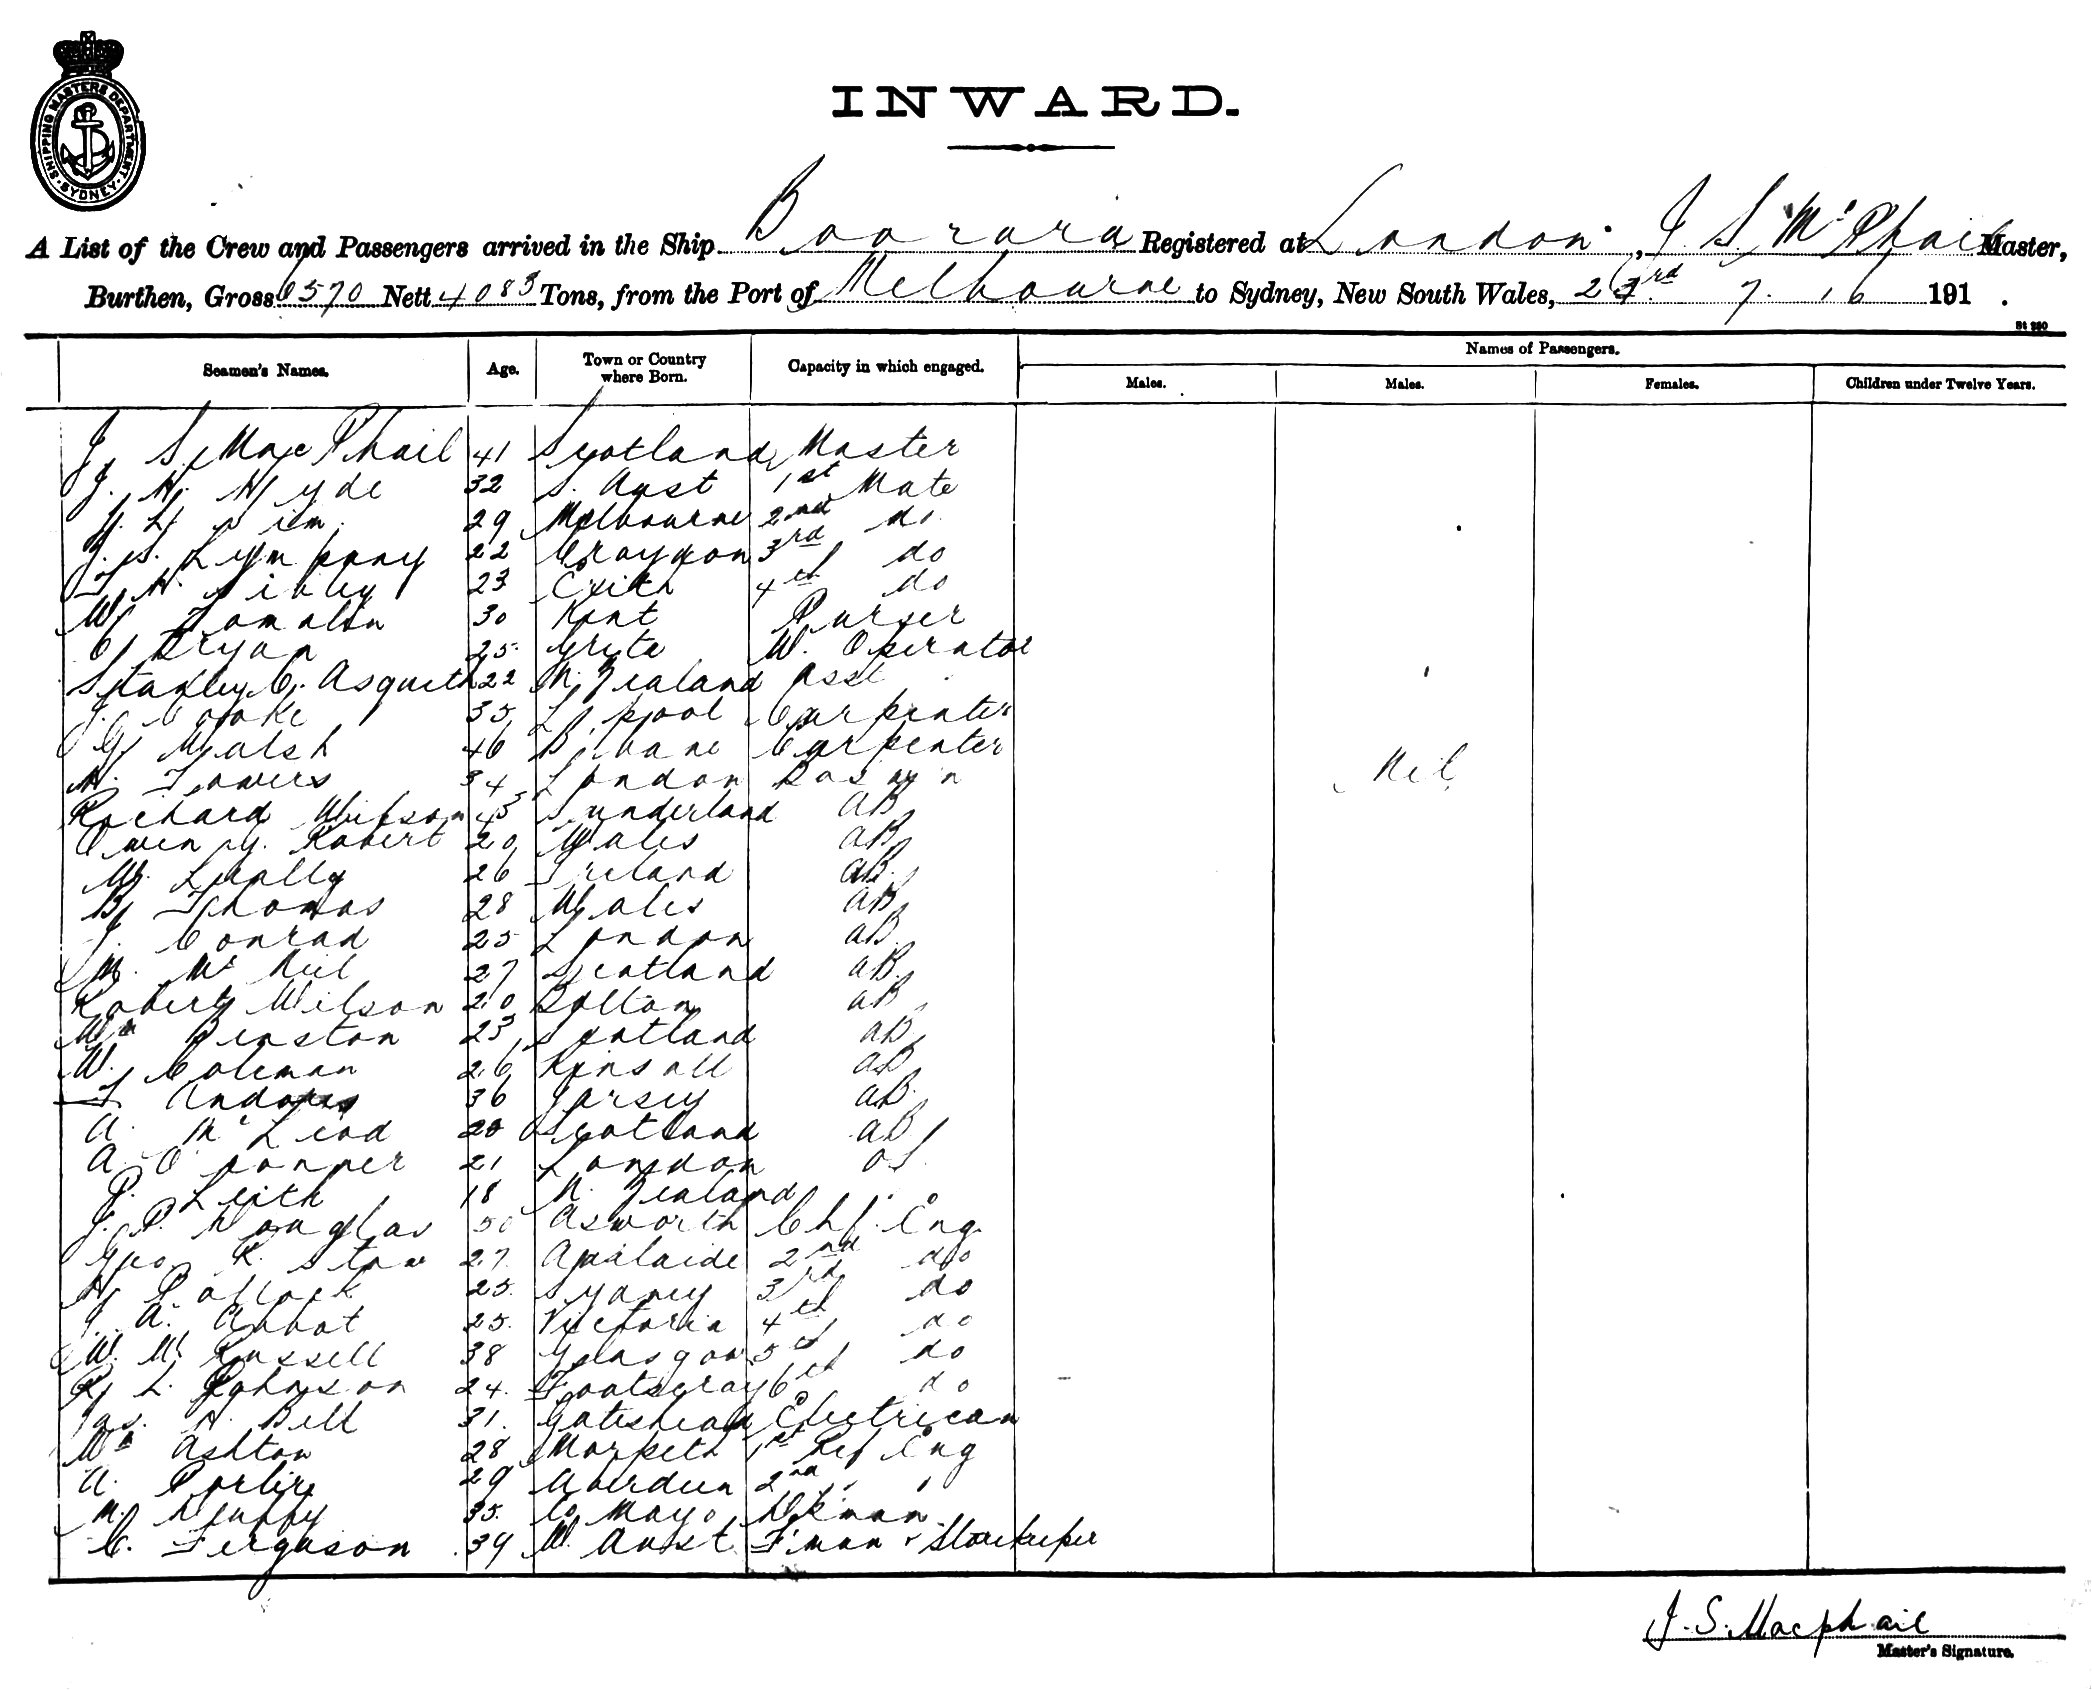 SHIPPING MASTERS DEPARTMENT. SYDNEY.
INWARD.
A List of the Crew and Passengers arrived in the Ship Boorara Registered at London, J. S. McPhail Master,
Burthen, Gross 6570 Nett 4083 Tons, from the Port of Melbourne to Sydney, New South Wales, 7. 16 191 .
St 280
Seamen's Names. Age. Town or Country where Born. Capacity in which engaged. Names of Passengers.
Males. Males. Females. Children under Twelve Years.
J. S. MacPhail 41 Scotland Master
J. H. Hyde 32 S. Aust 1st Mate
29 Melbourne 2nd do.
J. S. Lympany 22 Croydon 3rd do
H. Sibley 23 Erith 4th do
W. Tomalin 30 Kent Purser
C. Bryan 25 Greta W. Operator
Stanley C. Asquith 22 N. Zealand Asst
J. Cooke 35 L'pool Carpenter
G. Walsh 46 B'bane Carpenter
H. Towers 34 London Bos'n
Richard Wilkson 43 Sunderland AB
Owen G. Robert 20 Wales AB
M. Lually 26 Ireland AB.
B. Thomas 28 Wales AB
J. Conrad 25 London AB
M. McNeil 27 Scotland AB.
Robert Wilson 20 Bolton AB
Wm Benston 23 Scotland AB
W. Coleman 26 Kinsall AB
T. 36 Jersey AB.
A. McLeod 28 Scotland AB
A. O'Connor 21 London OS.
P. Leith 18 N. Zealand
J. P. Douglas 50 Asworth Chf. Eng.
Geo. R. Stow 27. Adelaide 2nd do
H. Pollock 25. Sydney 3rd do
J. A. Abbot 25. Victoria 4th do
W. W. Russell 38 Glasgow 5th do
R. L. Robinson 24. Footscray 6th do
Jas. H. Bell 31. Gateshead Electrican
Wm Ashton 28 Morpeth 1st Ref Eng
A. Porter 29 Aberdeen 2nd " "
M. Duffy 35. Co. Mayo Dkman
C. Ferguson 39 W. Aust F'man & Storekeeper
Nil
J. S. Macphail
Master's Signature.